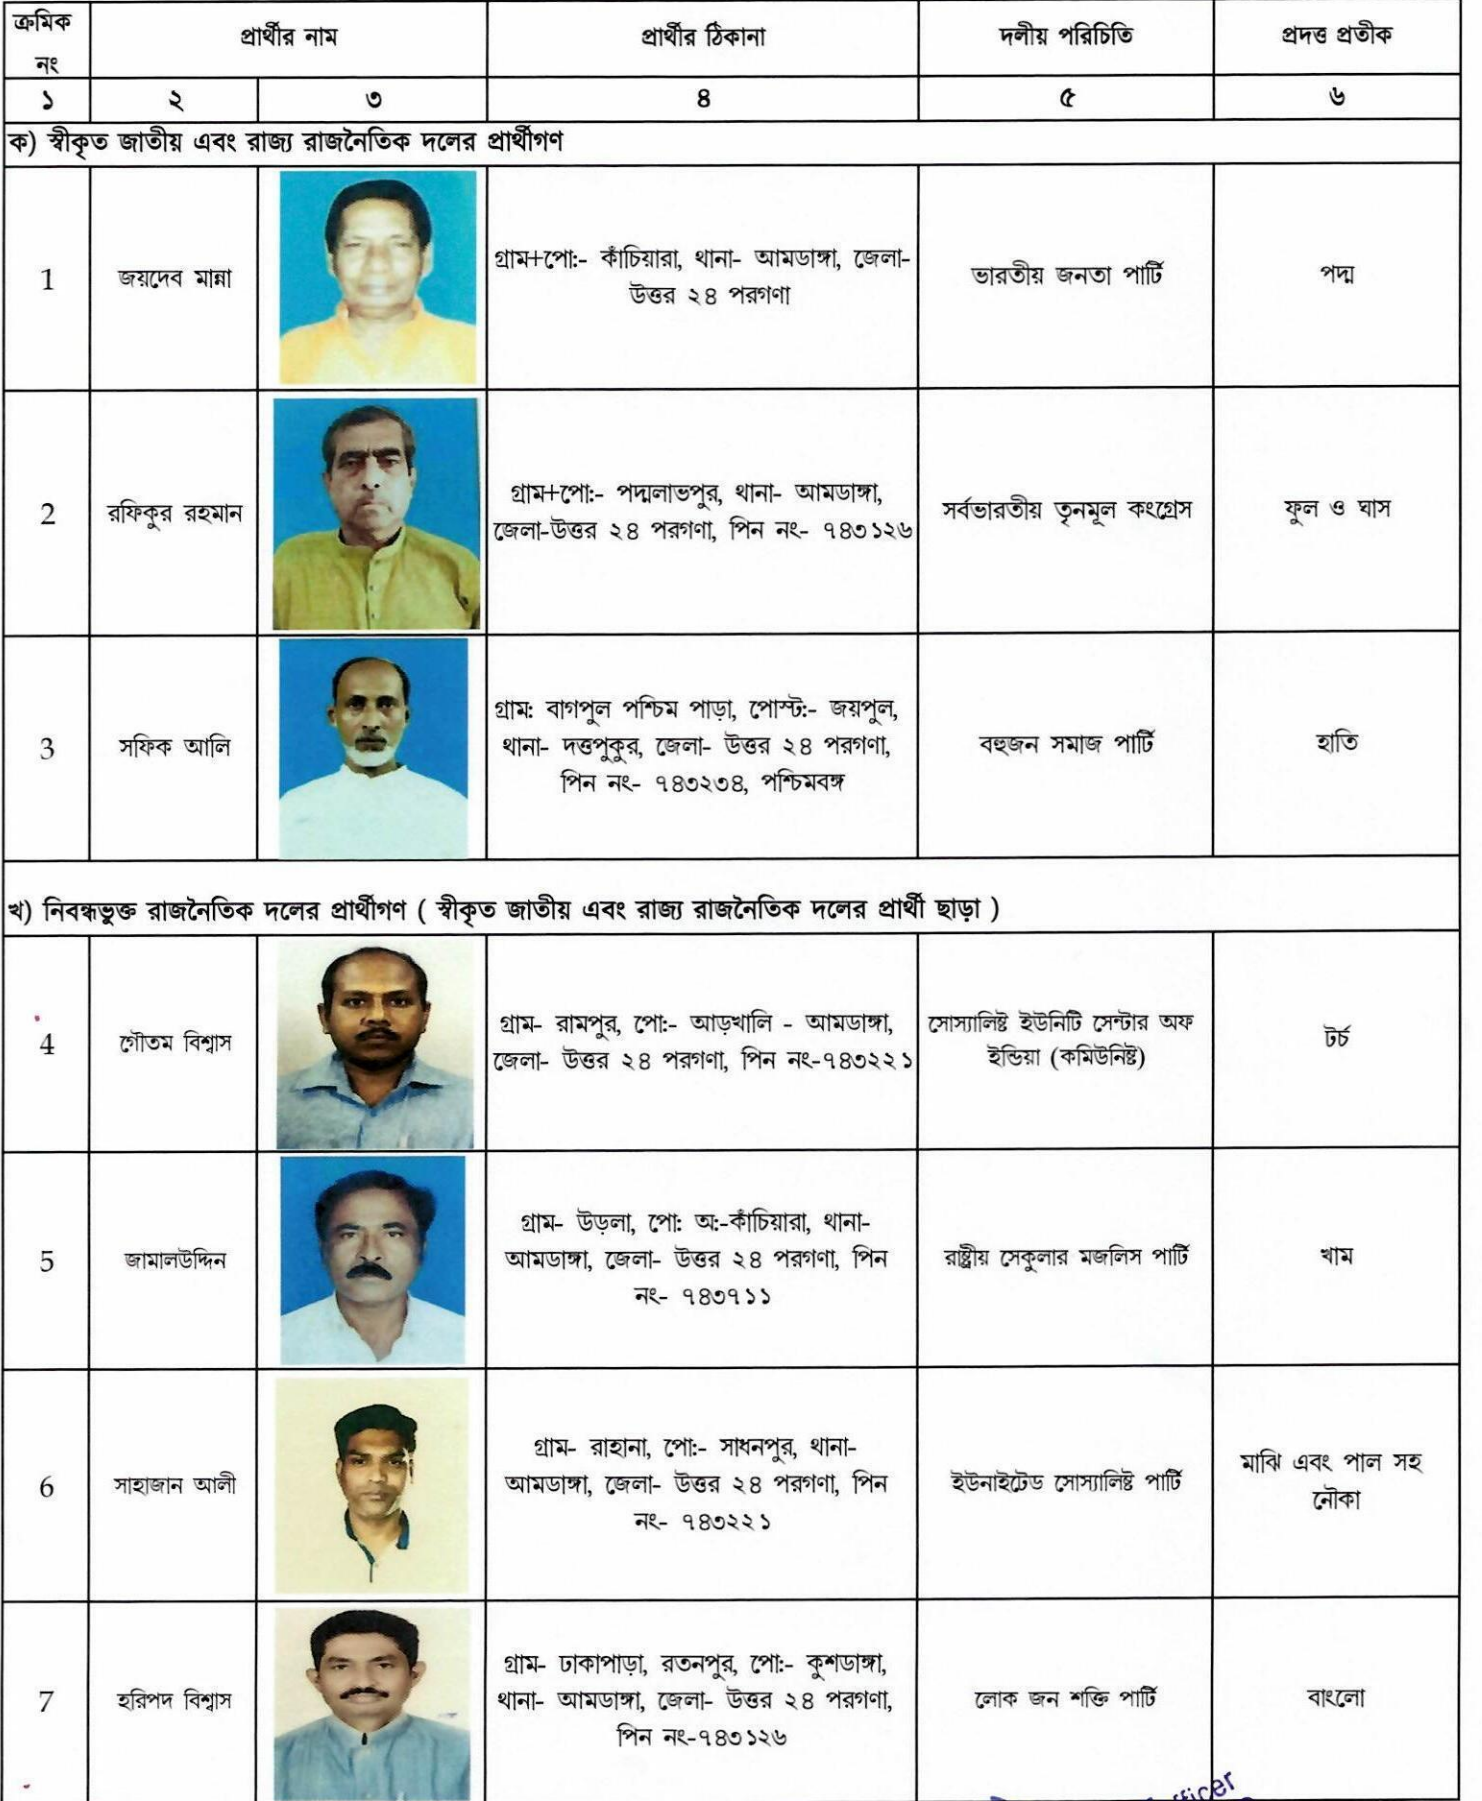 ক্রমিক নং
প্রার্থীর নাম
প্রার্থীর ঠিকানা
দলীয় পরিচিতি
প্রদত্ত প্রতীক
১ ২ ৩ ৪ ৫ ৬
ক) স্বীকৃত জাতীয় এবং রাজ্য রাজনৈতিক দলের প্রার্থীগণ
1
জয়দেব মান্না
গ্রাম+পো:- কাঁচিয়ারা, থানা- আমডাঙ্গা, জেলা-
উত্তর ২৪ পরগণা
ভারতীয় জনতা পার্টি
পদ্ম
2
রফিকুর রহমান
গ্রাম+পো:- পদ্মলাভপুর, থানা- আমডাঙ্গা,
জেলা-উত্তর ২৪ পরগণা, পিন নং- ৭৪৩১২৬
সর্বভারতীয় তৃনমূল কংগ্রেস
ফুল ও ঘাস
3
সফিক আলি
গ্রাম: বাগপুল পশ্চিম পাড়া, পোস্ট:- জয়পুল,
থানা- দত্তপুকুর, জেলা- উত্তর ২৪ পরগণা,
পিন নং- ৭৪৩২৩৪, পশ্চিমবঙ্গ
বহুজন সমাজ পার্টি
হাতি
খ) নিবন্ধভুক্ত রাজনৈতিক দলের প্রার্থীগণ ( স্বীকৃত জাতীয় এবং রাজ্য রাজনৈতিক দলের প্রার্থী ছাড়া )
4
গৌতম বিশ্বাস
গ্রাম- রামপুর, পো:- আড়খালি - আমডাঙ্গা,
জেলা- উত্তর ২৪ পরগণা, পিন নং-৭৪৩২২১
সোস্যালিষ্ট ইউনিটি সেন্টার অফ
ইন্ডিয়া (কমিউনিষ্ট)
টর্চ
5
জামালউদ্দিন
গ্রাম- উড়লা, পো: অ:-কাঁচিয়ারা, থানা-
আমডাঙ্গা, জেলা- উত্তর ২৪ পরগণা, পিন
নং- ৭৪৩৭১১
রাষ্ট্রীয় সেকুলার মজলিস পার্টি
খাম
6
সাহাজান আলী
গ্রাম- রাহানা, পো:- সাধনপুর, থানা-
আমডাঙ্গা, জেলা- উত্তর ২৪ পরগণা, পিন
নং- ৭৪৩২২১
ইউনাইটেড সোস্যালিষ্ট পার্টি
মাঝি এবং পাল সহ
নৌকা
7
হরিপদ বিশ্বাস
গ্রাম- ঢাকাপাড়া, রতনপুর, পো:- কুশডাঙ্গা,
থানা- আমডাঙ্গা, জেলা- উত্তর ২৪ পরগণা,
পিন নং-৭৪৩১২৬
লোক জন শক্তি পার্টি
বাংলো